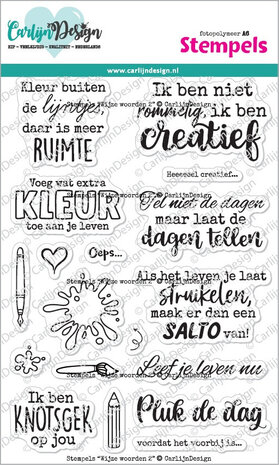 CarlijnDesign
HIP - VROLIJK - KWALITEIT - NEDERLANDS
fotopolymeer A6
Stempels
www.carlijndesign.nl
Kleur buiten
de lijntjes,
daar is meer
RUIMTE
Ik ben niet
rommelig, ik ben
creatief
Stempels "Wijze woorden 2" © CarlijnDesign
Heeeeel creatief...
Voeg wat extra
KLEUR
toe aan je leven
Tel niet de dagen
maar laat de
dagen tellen
Oeps...
Als het leven je laat
struikelen,
maak er dan een
SALTO van!
Leef je leven nu
Stempels "Wijze woorden 2" © CarlijnDesign
Ik ben
KNOTSGEK
op jou
Pluk de dag
voordat het voorbij is...
Stempels "Wijze woorden 2" © CarlijnDesign